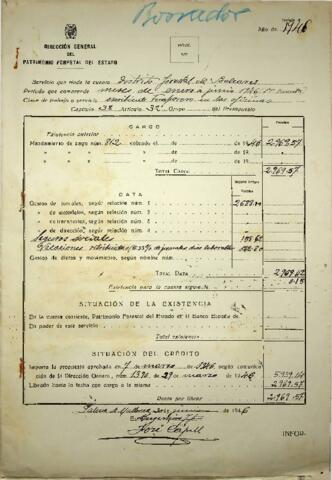 Borrador
Año de 1946
DIRECCIÓN GENERAL
DEL
PATRIMONIO FORESTAL DEL ESTADO
Servicio que rinde la cuenta Distrito Forestal de Baleares
Período que comprende meses de enero a junio 1946
Clase de trabajo o servicio escribiente temporero en las oficinas
Capítulo Grupo del Presupuesto
CARGO
Existencia anterior
Mandamiento de cargo núm. 812 cobrado el de de 1946 2.969.57
» » » » de de 19
» » » » de de 19
» » » » de de 19
TOTAL CARGO 2.969.57
DATA
Gastos de jornales, según relación núm. 1
» de materiales, según relación núm. 2
» de transportes, según relación núm. 3
» de dirección, según relación núm. 4
Seguros sociales
Gastos de dietas y movimientos, según relación núm.
TOTAL DATA
Existencia para la cuenta siguiente
SITUACIÓN DE LA EXISTENCIA
En la cuenta corriente, Patrimonio Forestal del Estado en el Banco España de
En poder de este servicio
Total existencia
SITUACIÓN DEL CRÉDITO
Importa la propuesta aprobada en 7 de marzo de 1946 según comunica-
ción de la Dirección General, núm. 1390 de 27 de marzo de 1946
Librado hasta la fecha con cargo a la misma 2.969.57
Resta por librar 2.969.57
Palma de Mallorca junio de 1946
El Ingeniero Jefe
José
INFOR.